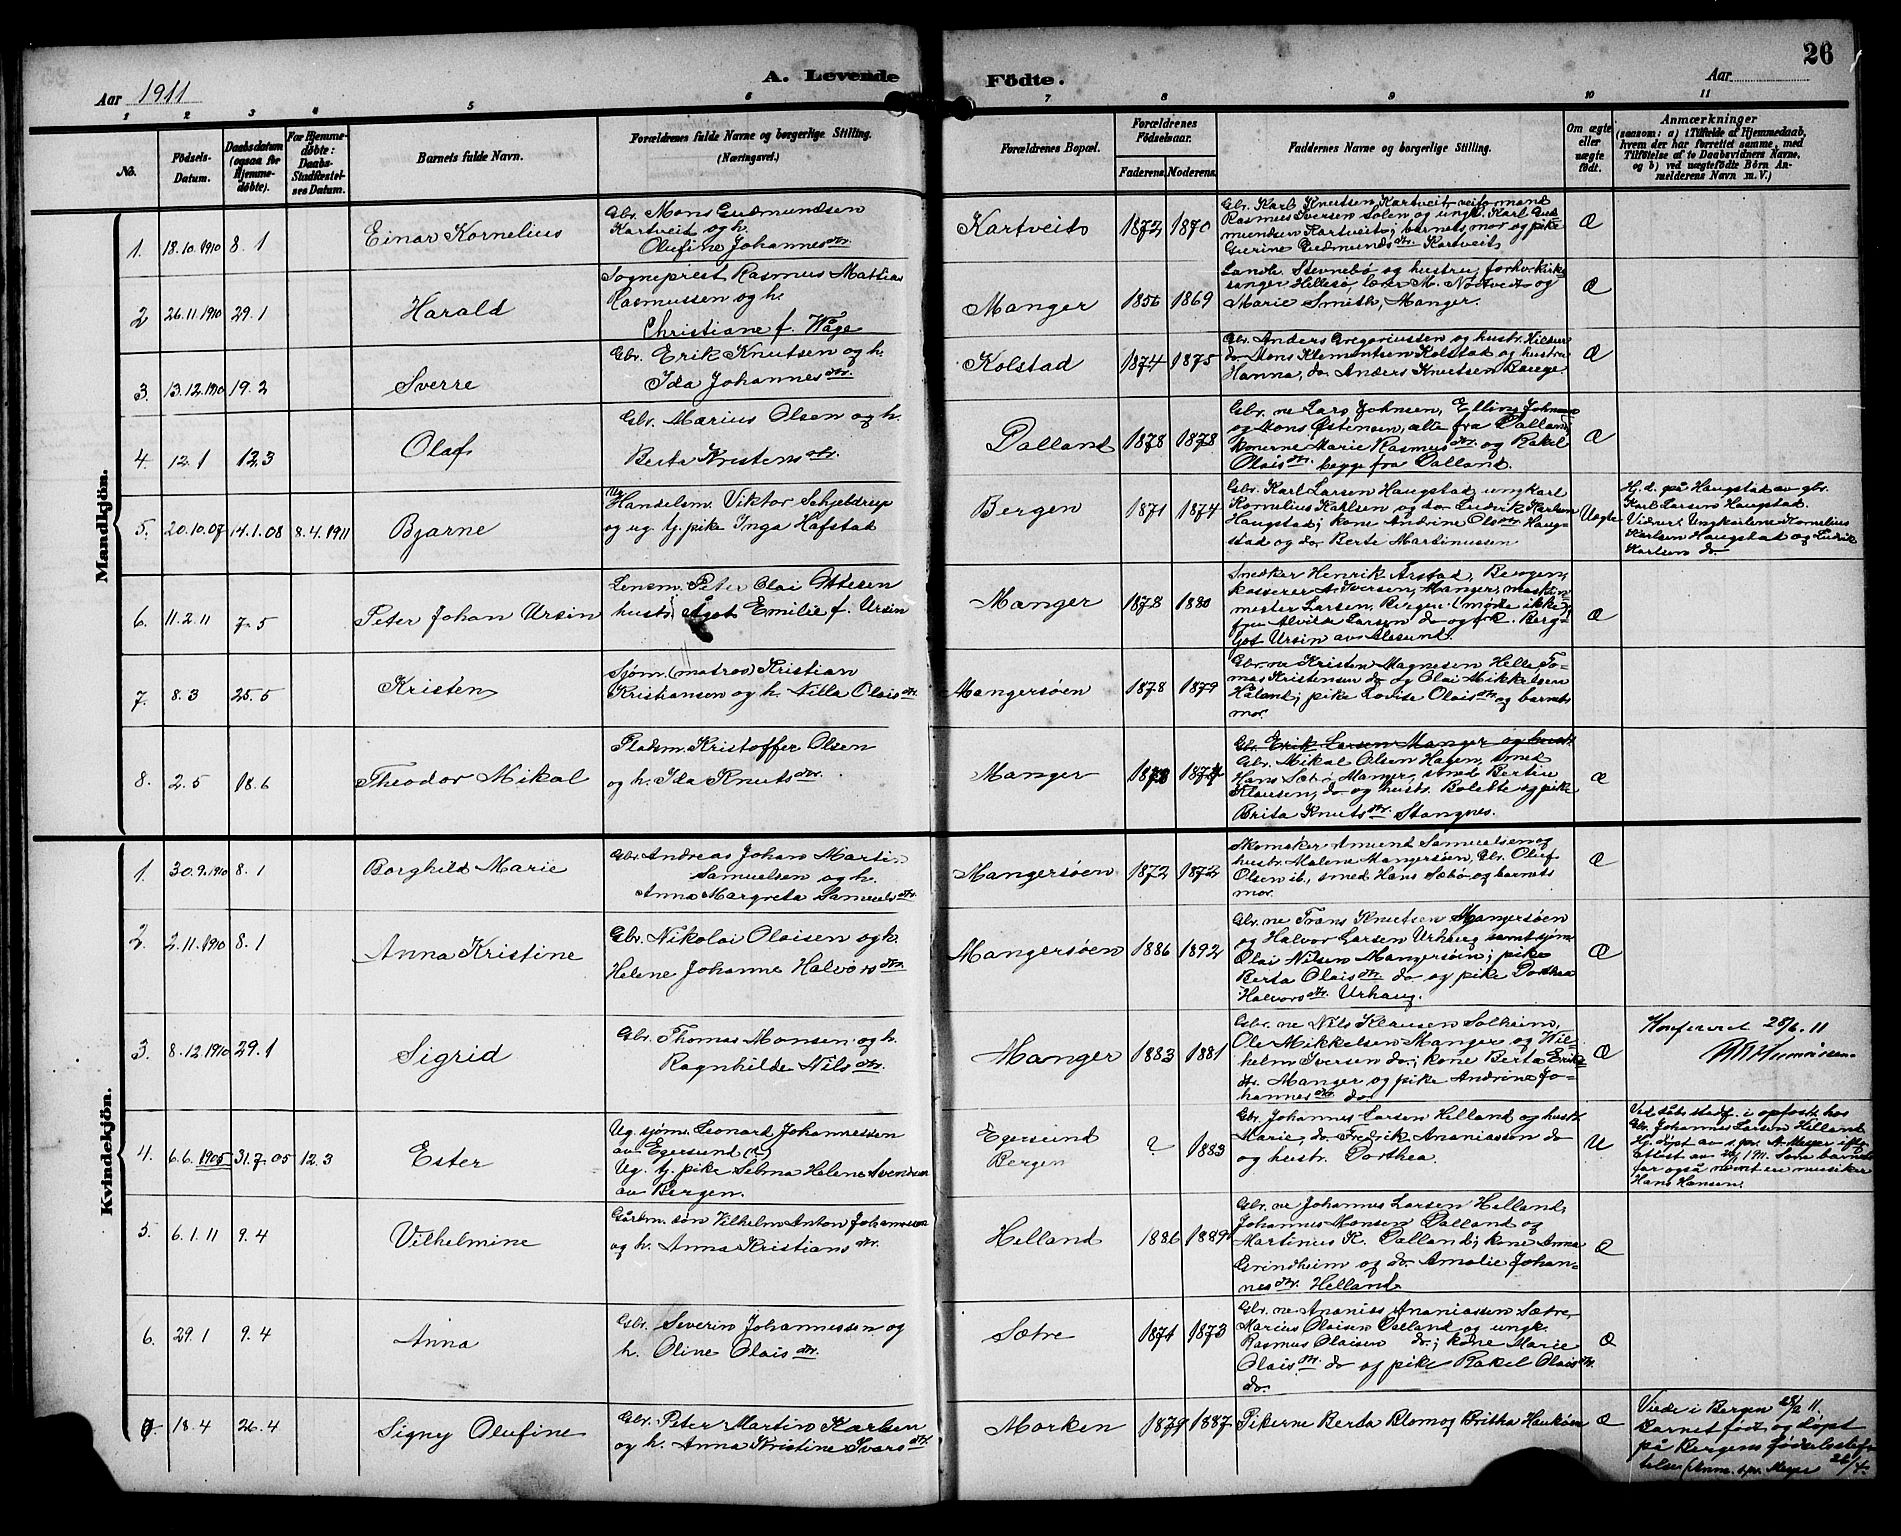 26
A. Levende Födte.
Aar 1911
Aar
1 2 3 4 5 6 7 8 9 10 11
No.
Födsels-Datum.
Daabsdatum (ogsaa for Hjemmedöbte).
For Hjemmedöbte: Daabs-Stadfæstelses Datum.
Barnets fulde Navn.
Forældrenes fulde Navne og borgerlige Stilling. (Næringsvei.)
Forældrenes Bopæl.
Forældrenes Födselsaar.
Faderens. Moderens.
Faddernes Navne og borgerlige Stilling.
Om ægte eller uægte födt.
Anmærkninger
(saasom: a) i Tilfælde af Hjemmedaab, hvem der har forrettet samme, med Tilföielse af to Daabsvidners Navne, og b) ved uægtefödte Börn Anmelderens Navn m. V.)
Mandkjön.
1. 18.10.1910 8.1 Einar Kornelius
Gbr. Mons Gudmundsen
Kartveit og h.
Olufine Johannesdtr.
Kartveit 1872 1870
Gbr. Karl Knutsen Kartveit,
Rasmus Iversen Solen og ungk. Karl Gud
mundsen Kartveit; barnets mor og pike
Gurine Gudmundsdtr. Kartveit
Æ
2 26.11.1910 29.1 Harald
Sogneprest Rasmus Mattias
Rasmussen og h.
Christiane f. Våge
Manger 1856 1869
Landh. Stevnebø og hustru, forhv. kirke
sanger Hellesö lærer M. Nøttveit og
Marie Smith, Manger.
Æ
3. 13.12.1910 19.2 Sverre
Gbr. Erik Knutsen og h.
Ida Johannesdtr.
Kolstad 1874 1875
Gbr. Anders Gregoriussen og hustr.
do. Mons Klementsen Kolstad og hustru
Hanna, do. Anders Knutsen Bauge
Æ
4. 12.1 12.3 Olaf
Gbr. Marius Olsen og h.
Berta Kristensdtr.
Dalland 1878 1878
Gbr.ne Lars Johnsen, Elling Johnsen
og Mons Østensen, alle fra Dalland,
konerne Marie Rasmusdtr. og Rakel
Olaisdtr. begge fra Dalland.
Æ
5. 20.10.07 14.1.08 8.4.1911 Bjarne
Ug. Handelsm. Viktor Schjeldrup
og ug. tj. pike Inga Hafstad
Bergen 1871 1874
Gbr. Karl Larsen Haugstad, ungkarl
Kornelius Karlsen og do. Ludvik Karlsen
Haugstad; kone Andrine Olsdtr. Haug
stad og do. Berte Martinussen
Uægte
Hj.d. på Haugstad av gbr.
Karl Larsen Haugstad.
Vidner: Ungkarlene Kornelius
Karlsen Haugstad og Ludvik
Karlsen do
6. 11.2.11 7.5 Peter Johan Ursin
Lensm. Peter Olai Ottesen
hustr. Ågot Emilie f. Ursin
Manger 1878 1880
Snedker Henrik Årstad, Bergen,
kasserer A. Iversen, Manger, maskin
mester Larsen, Bergen (møtte ikke)
fru Alvilda Larsen do og frk. Berg-
liot Ursin av Ålesund.
Æ
7. 8.3 25.5 Kristen
Sjøm. (matros) Kristian
Kristiansen og h. Nille Olaisdtr.
Mangersöen 1878 1879
Gbr.ne Kristen Magnesen Helle, To-
mas Kristensen do og Olai Mikkelsen
Håland; pike Lovise Olaisdtr. og barnets
mor.
8. 2.5 18.6 Theodor Mikal
Pladsm. Kristoffer Olsen
og h. Ida Knutsdtr.
Manger 1878 1877
Gbr. Erik Larsen Manger og hustr.
Gbr. Mikal Olsen Hagen, smed
Hans Sæbø, Manger, smed Bertin
Klausen, do og hustr. Bolette og pike
Brita Knutsdtr. Stangnes.
Æ
Kvindekjön.
1. 30.9.1910 8.1 Borghild Marie
Gbr. Andreas Johan Martin
Samuelsen og h.
Anna Margreta Samuelsdtr.
Mangersöen 1872 1872
Skomaker Amund Samuelsen og
hustr. Malene Mangersöen, Gbr. Oluf
Olsen ib., smed Hans Sæbö og barnets
mor.
Æ
2. 2.11.1910 8.1 Anna Kristine
Gbr. Nikolai Olaisen og h.
Helene Johanne Halvorsdtr.
Mangersöen 1886 1892
Gbr.ne Frans Knutsen Mangersöen
og Halvor Larsen Urhaug samt sjøm.
Olai Nilsen Mangersöen; pike
Berta Olaisdtr. do og pike Dorthea
Halvorsdtr. Urhaug.
Æ
3. 8.12.1910 29.1 Sigrid
Gbr. Thomas Monsen og h.
Ragnhilde Nilsdtr.
Manger 1883 1881
Gbr.ne Nils Klausen Solheim,
Ole Mikkelsen Manger og Wil-
helm Iversen do; kone Berta Eriks
dtr. Manger og pike Andrine Jo-
hannesdtr. do
Æ
Konfereret 28/6.11
4. 6.6.1905 31.7.05 12.3 Ester
Ug. sjøm. Leonard Johannessen
av Egersund
Ug. tj. pike Selma Helene Svendsen
av Bergen.
Egersund
Bergen
? 1883
Gbr. Johannes Larsen Helland og hustr.
Marie, do. Fredrik Ananiassen do
og hustr. Dorthea.
U
Ved dåbs stadf. i opfostr. hos
Gbr. Johannes Larsen Helland
Hj. döpt av s.pr. A. Meyer iflg.
attest av 1911. Som barnets
far også nævnt en musiker
Hans Hansen.
5. 6.1.11 9.4 Vilhelmine
Gårdm. søn Vilhelm Anton Johannessen
og h. Anna Kristiansdtr.
Helland 1886 1889
Gbr.ne Johannes Larsen Helland,
Johannes Monsen Dalland og
Martinius K. Dalland; kone Anna
Grindheim og do. Amalie Johan-
nesdtr. Helland
Æ
6. 29.1 9.4 Anna
Gbr. Severin Johannessen og
h. Oline Olaisdtr.
Sætre 1874 1873
Gbr.ne Ananias Ananiassen Sætre,
Marius Olaisen Dalland og ungk.
Rasmus Olaisen do; kone Marie
Olaisdtr. do og pike Rakel Olaisdtr.
do.
Æ
7. 18.4 26.4 Signy Olufine
Gbr. Peter Martin Karlsen
og h. Anna Kristine Ivarsdtr.
Morken 1879 1887
Pikerne Berta Blom og Britha Haukøen
Æ
Viede i Bergen 11.
Barnet født og döpt
på Bergens fødselsstif-
telse 26/4.